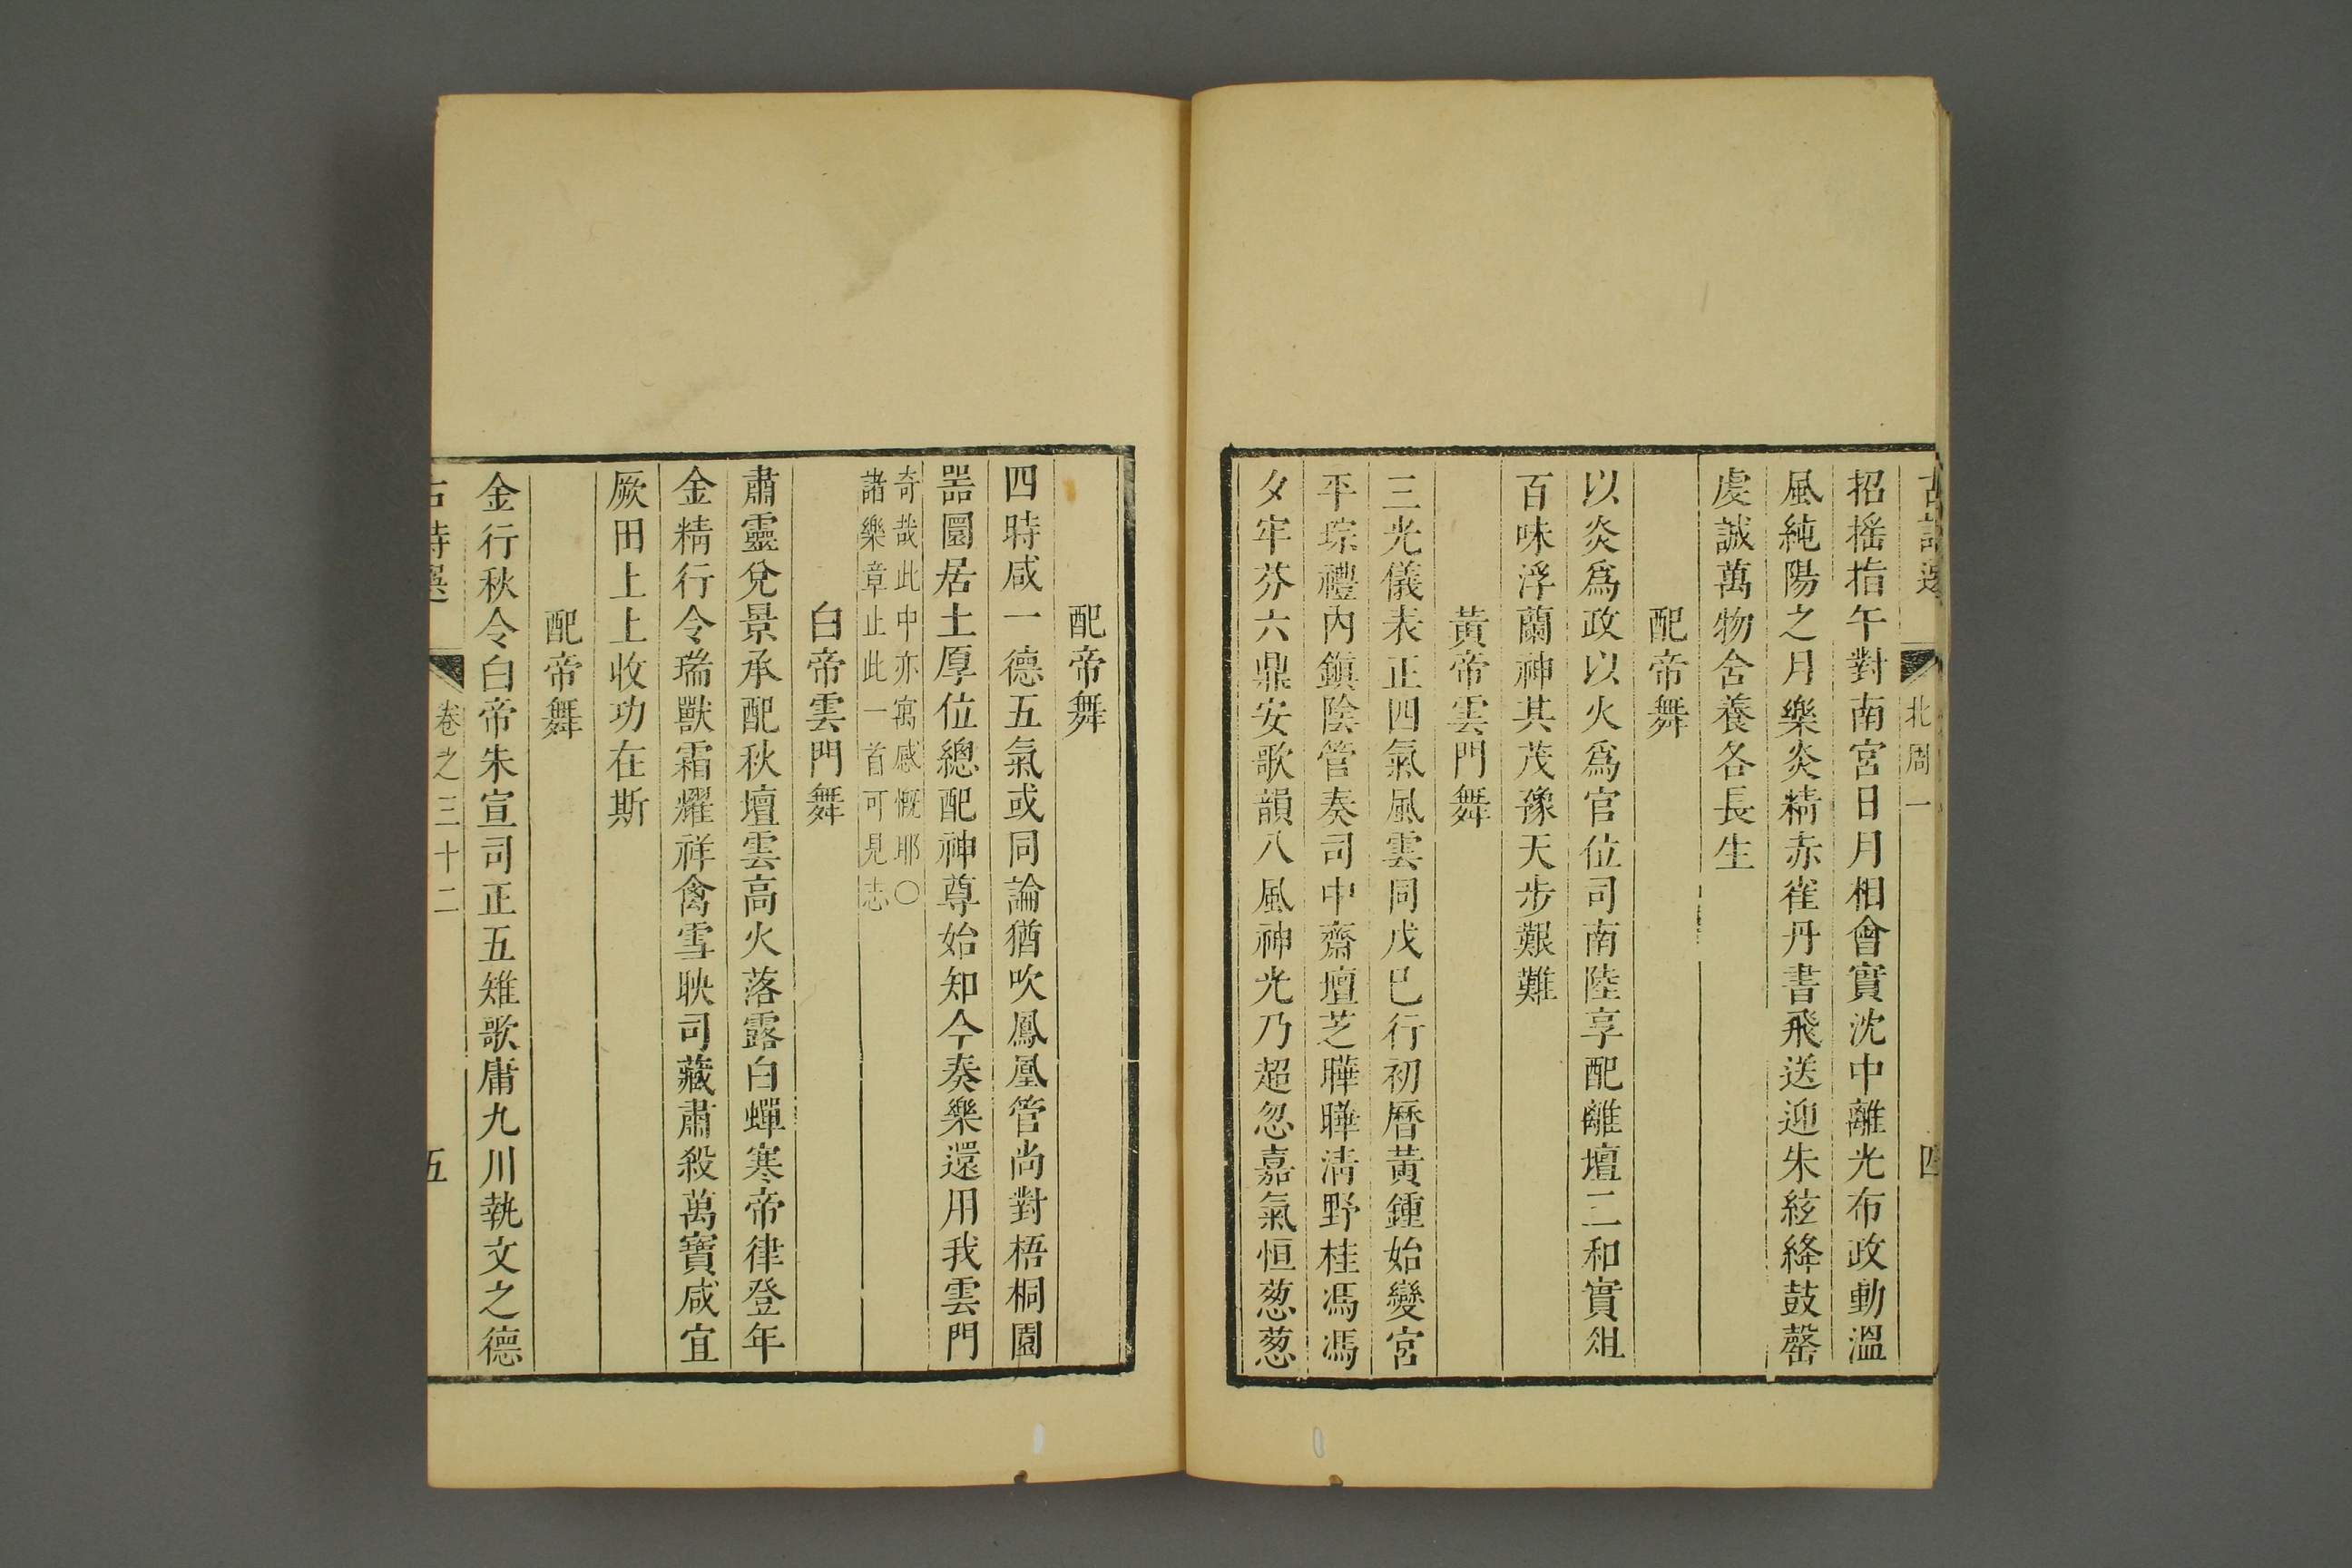 古詩選 北周一 四
招搖指午對南宮日月相會實沈中離光布政動溫
風純陽之月樂炎精赤雀丹書飛送迎朱絃絳鼓罄
虔誠萬物含養各長生
配帝舞
以炎爲政以火爲官位司南陸享配離壇二和實俎
百味浮蘭神其茂豫天步艱難
黃帝雲門舞
三光儀表正四氣風雲同戊巳行初曆黃鍾始變宮
平琮禮內鎮陰管奏司中齋壇芝曄曄淸野桂馮馮
夕牢芬六鼎安歌韻八風神光乃超忽嘉氣恒葱葱
配帝舞
四時咸一德五氣或同論猶吹鳳凰管尚對梧桐園
器圜居土厚位總配神尊始知今奏樂還用我雲門
奇哉此中亦寓感慨耶○
諸樂章止此一首可見志
白帝雲門舞
肅靈兌景承配秋壇雲高火落露白蟬寒帝律登年
金精行令瑞獸霜耀祥禽雪映司藏肅殺萬寶咸宜
厥田上上收功在斯
配帝舞
金行秋令白帝朱宣司正五雉歌庸九川執文之德
古詩選 卷之三十二 五